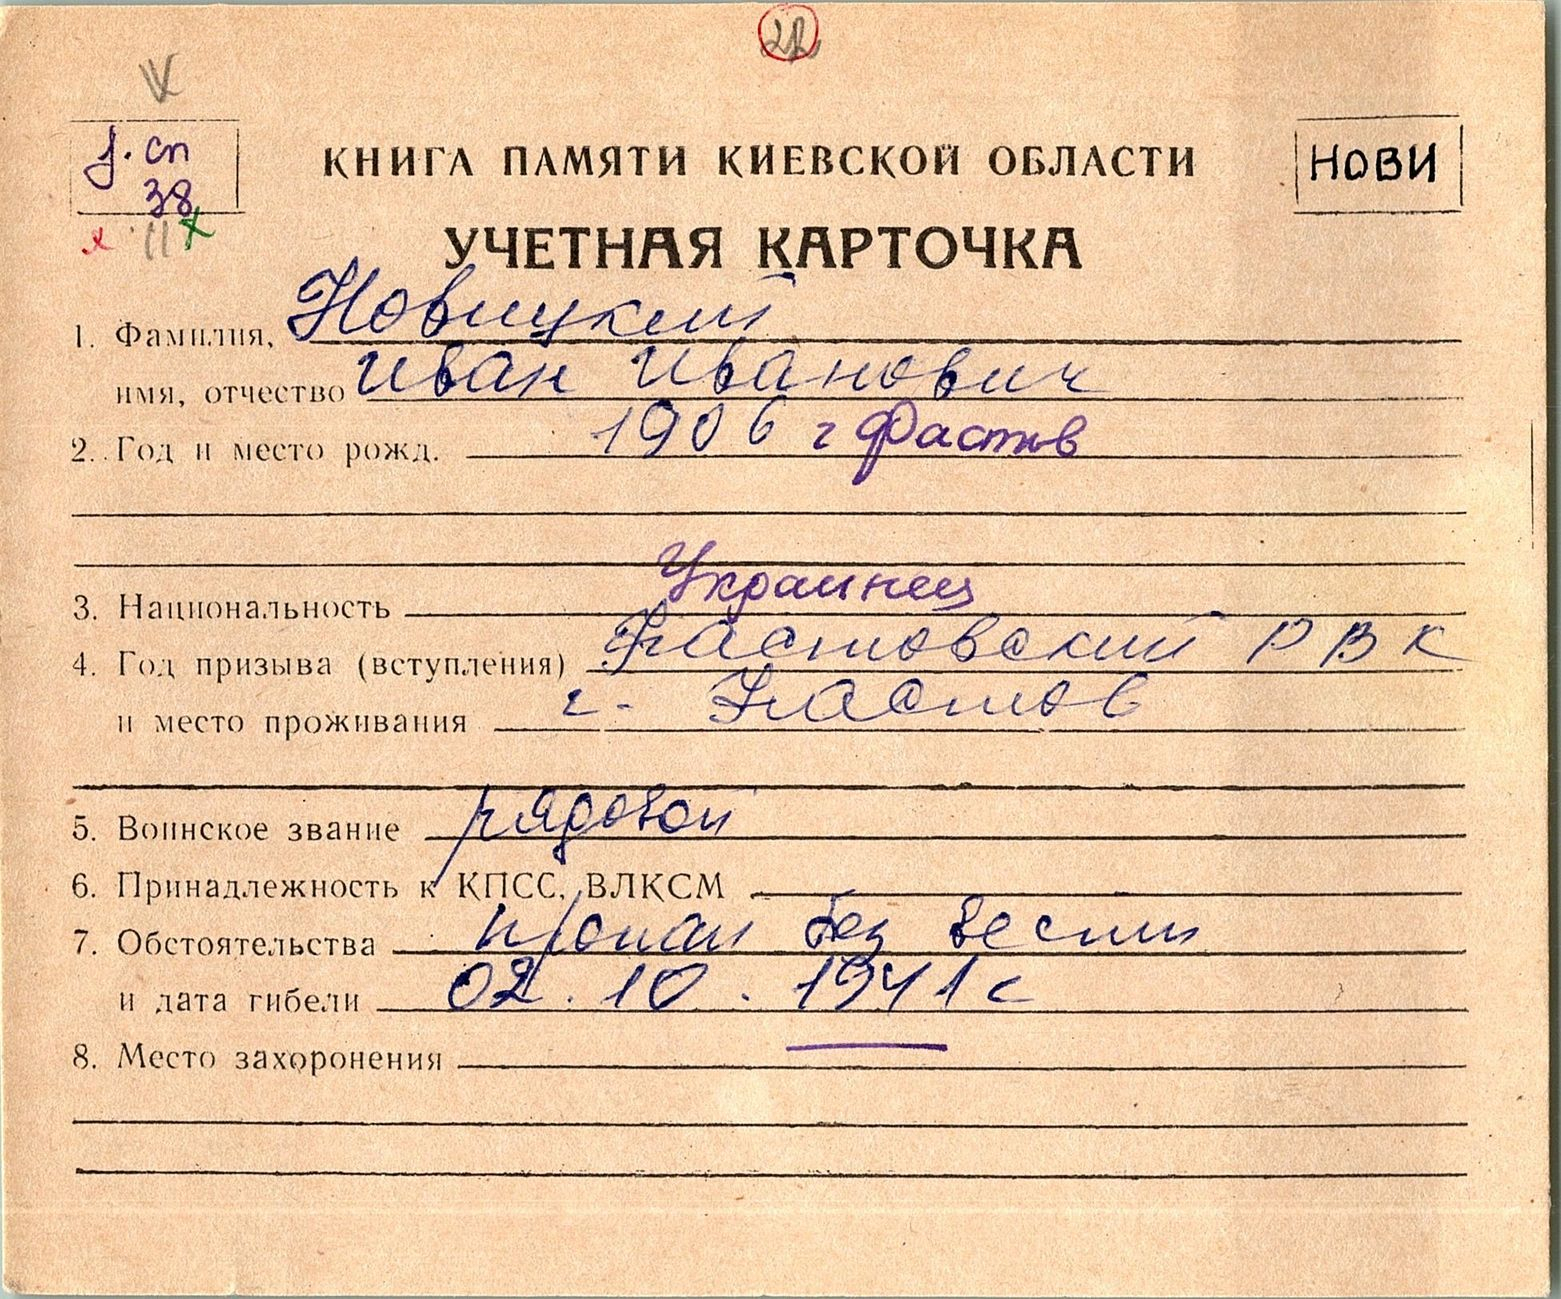 38
КНИГА ПАМЯТИ КИЕВСКОЙ ОБЛАСТИ
НОВИ
УЧЕТНАЯ КАРТОЧКА
1. Фамилия, Новицкий
имя, отчество Иван Иванович
2. Год и место рожд. 1906 г Фастов
3. Национальность Украинец
4. Год призыва (вступления) Фастовский РВК
и место проживания г. Фастов
5. Воинское звание рядовой
6. Принадлежность к КПСС, ВЛКСМ
7. Обстоятельства пропал без вести
и дата гибели 02.10.1941 г
8. Место захоронения